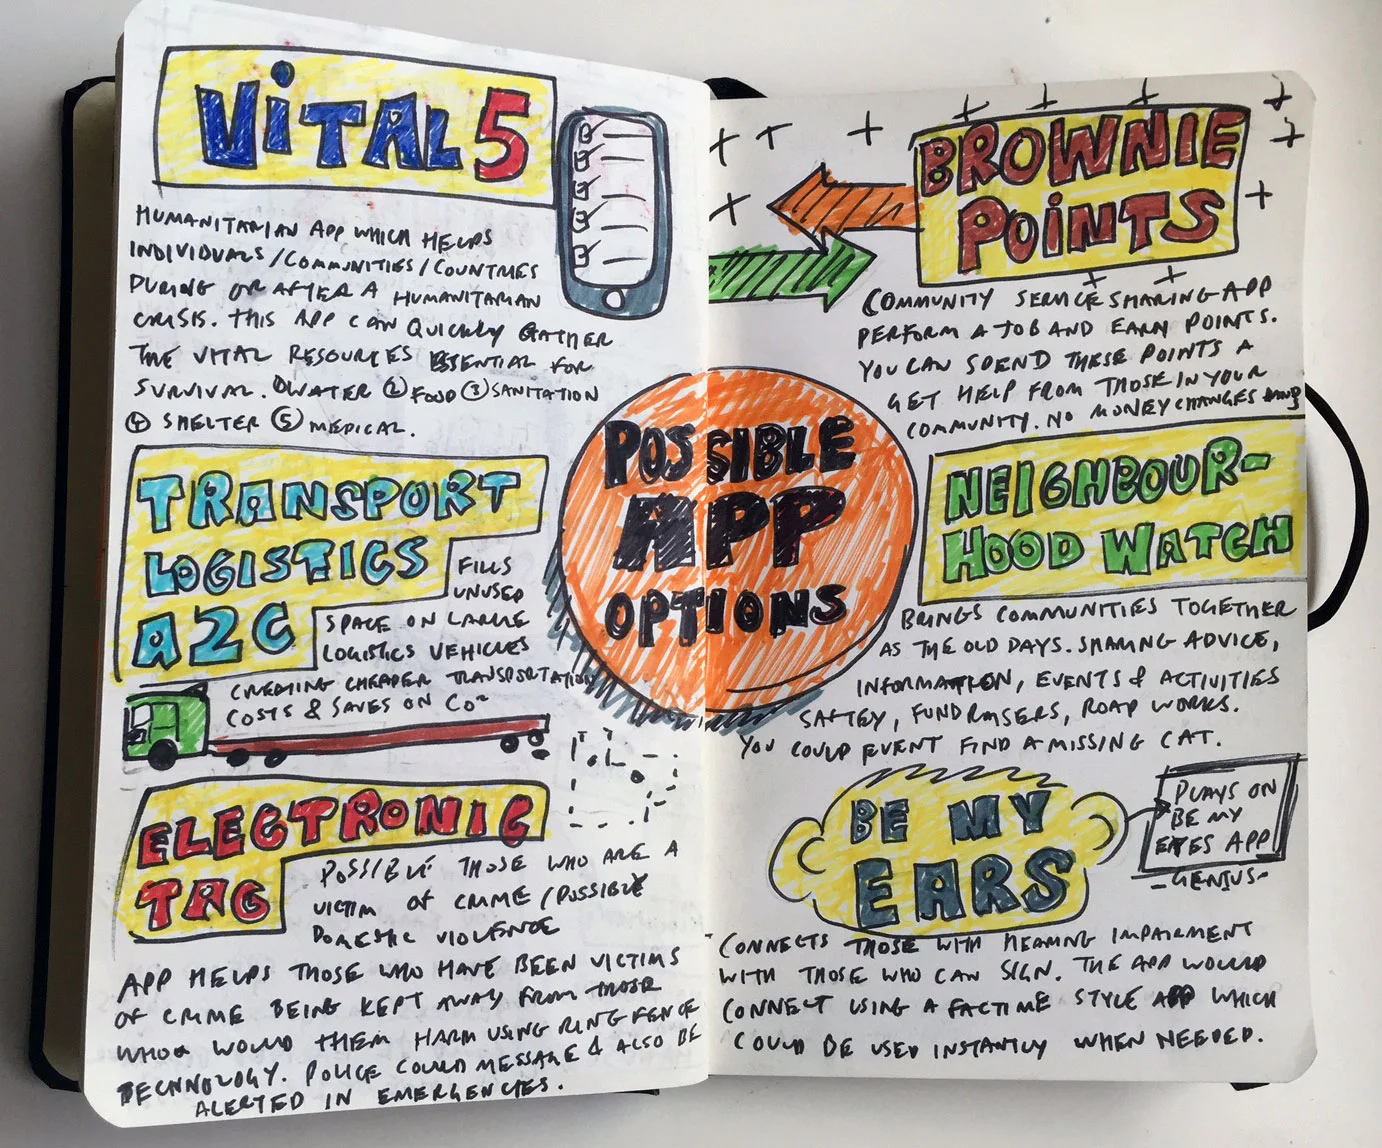 VITAL 5
HUMANITARIAN APP WHICH HELPS
INDIVIDUALS/COMMUNITIES/COUNTRIES
DURING OR AFTER A HUMANITARIAN
CRISIS. THIS APP CAN QUICKLY GATHER
THE VITAL RESOURCES ESSENTIAL FOR
SURVIVAL. ① WATER ② FOOD ③ SANITATION
④ SHELTER ⑤ MEDICAL.
TRANSPORT
LOGISTICS
A2C
FILLS
UNUSED
SPACE ON LARGE
LOGISTICS VEHICLES
CREATING CHEAPER TRANSPORTATION
COSTS & SAVES ON CO²
ELECTRONIC
TAG
POSSIBLE THOSE WHO ARE A
VICTIM OF CRIME/POSSIBLE
DOMESTIC VIOLENCE
APP HELPS THOSE WHO HAVE BEEN VICTIMS
OF CRIME BEING KEPT AWAY FROM THOSE
WHO WOULD THEM HARM USING RING FENCE
TECHNOLOGY. POLICE COULD MESSAGE & ALSO BE
ALERTED IN EMERGENCIES.
POSSIBLE
APP
OPTIONS
BROWNIE
POINTS
COMMUNITY SERVICE SHARING APP
PERFORM A JOB AND EARN POINTS.
YOU CAN SPEND THESE POINTS A
GET HELP FROM THOSE IN YOUR
COMMUNITY. NO MONEY CHANGES HANDS
NEIGHBOUR-
HOOD WATCH
BRINGS COMMUNITIES TOGETHER
AS THE OLD DAYS. SHARING ADVICE,
INFORMATION, EVENTS & ACTIVITIES
SAFTEY, FUNDRAISERS, ROAD WORKS.
YOU COULD EVENT FIND A MISSING CAT.
BE MY
EARS
PLAYS ON
BE MY
EYES APP
-GENIUS-
CONNECTS THOSE WITH HEARING IMPAIRMENT
WITH THOSE WHO CAN SIGN. THE APP WOULD
CONNECT USING A FACTIME STYLE APP WHICH
COULD BE USED INSTANTLY WHEN NEEDED.